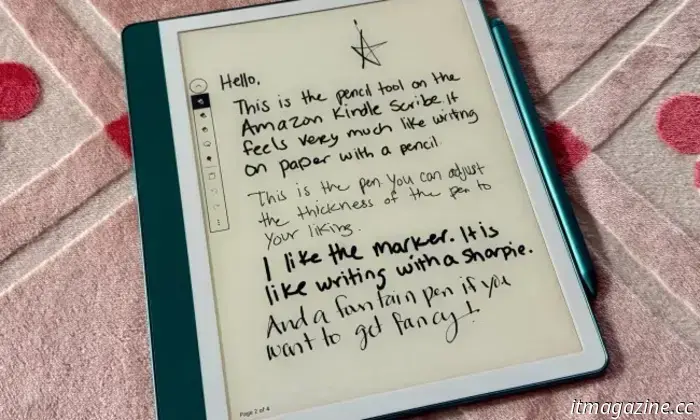 Hello,
This is the pencil tool on the
Amazon Kindle Scribe. It
feels very much like writing
on paper with a pencil.
This is the pen. You can adjust
the thickness of the pen to
your liking.
I like the marker. It is
like writing with a sharpie.
And a fountain pen if you
want to get fancy!
Page 2 of 4
itmagazine.cc